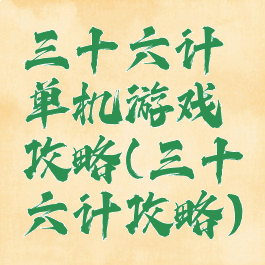 三十六计
单机游戏
攻略(三十
六计攻略)